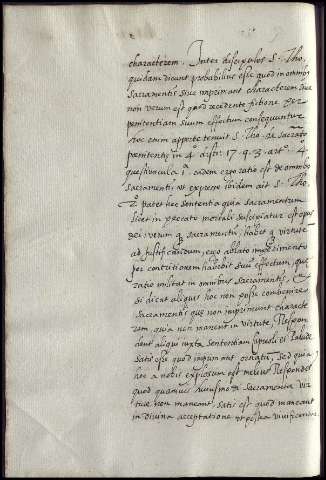 characterem. Inter discipulos S. Tho.
quidam dicunt probabilius esse quod in omnibus
sacramentis sive imprimant characterem sive
non verum est quod recedente fictione per
penitentiam suum effectum consequuntur
hoc enim apperte tenuit S. Tho. de sacrato
penitentiæ in 4º distin. 17. q. 3. artº. 4º
questiuncula 1ª. eadem ergo ratio est de omnibus
sacramentis, ut expresse ibidem ait S. Tho.
2º patet hec sententia quia sacramentum
licet in peccato mortali suscipiatur est opus
dei: verum q sacramentum, habet q virtute
ad justificandum, ergo ablato impedimento
per contritionem habebit suum effectum, que
ratio militat in omnibus sacramentis,
si dicat aliquis hoc non posse convenire
sacramentis que non imprimunt characte
rem, quia non manent in virtute, Respon
dent aliqui iuxta sententiam Capreoli et Palude
satis esse quod imprimant ornatum, sed quia
hec a nobis explosum est melius Respondet
quod quamvis huiusmodi sacramenta vir
tute non maneant, satis est quod maneant
in divina acceptatione et postea vivificentur